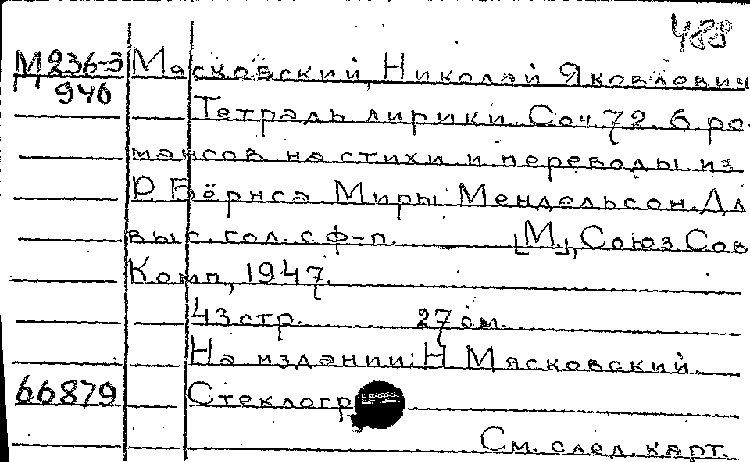 488
М236-3 Мясковский, Николай Яковлевич
946
Тетрадь лирики. Соч. 72. 6 ро-
мансов на стихи и переводы из
Р. Бёрнса Миры Мендельсон. Дл
выс. гол. с ф-п. [М.], Союз Сов
Комп., 1947.
43 стр. 27 см.
На издании: Н. Мясковский.
66879 Стеклогр
См. след. карт.